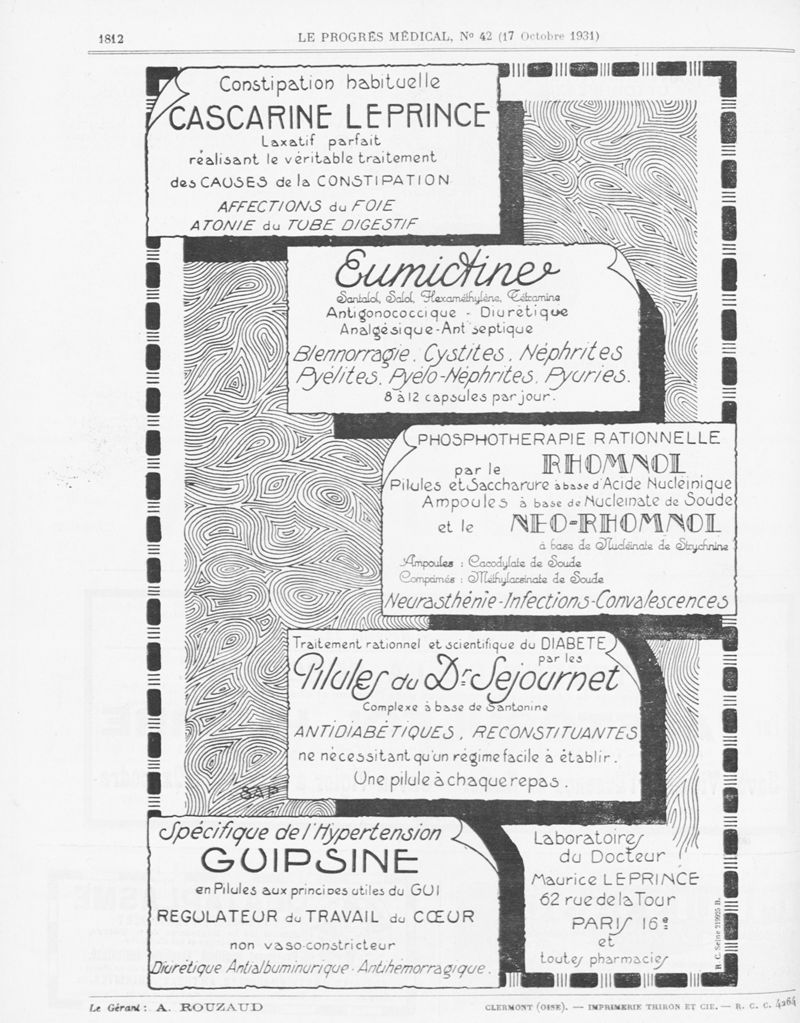 1812
LE PROGRÈS MÉDICAL, No 42 (17 Octobre 1931)
Constipation habituelle
CASCARINE LEPRINCE
Laxatif parfait
réalisant le véritable traitement
des CAUSES de la CONSTIPATION
AFFECTIONS du FOIE
ATONIE du TUBE DIGESTIF
Eumictine
Santalol, Salol, Hexaméthylène, Tétramine
Antigonococcique - Diurétique
Analgésique-Antiseptique
Blennorragie. Cystites. Néphrites
Pyélites. Pyélo-Néphrites. Pyuries.
8 à 12 capsules par jour.
PHOSPHOTHERAPIE RATIONNELLE
par le RHOMNOL
Pilules et Saccharure à base d'Acide Nucléinique
Ampoules à base de Nucleinate de Soude
et le NEO-RHOMNOL
à base de Nucléinate de Strychnine
Ampoules : Cacodylate de Soude
Comprimés : Méthylarsinate de Soude
Neurasthénie-Infections-Convalescences
Traitement rationnel et scientifique du DIABETE
par les
Pilules du Dr Sejournet
Complexe à base de Santonine
ANTIDIABÉTIQUES, RECONSTITUANTES
ne nécessitant qu'un régime facile à établir.
Une pilule à chaque repas.
SAP
Spécifique de l'Hypertension
GUIPSINE
en Pilules aux principes utiles du GUI
REGULATEUR du TRAVAIL du CŒUR
non vaso-constricteur
Diurétique Antialbuminurique - Antihémorragique.
Laboratoires
du Docteur
Maurice LEPRINCE
62 rue de la Tour
PARIS 16e
et
toutes pharmacies
R. C. Seine 219925 B.
Le Gérant : A. ROUZAUD
CLERMONT (OISE). — IMPRIMERIE THIRON ET CIE. — R. C. C. 4264